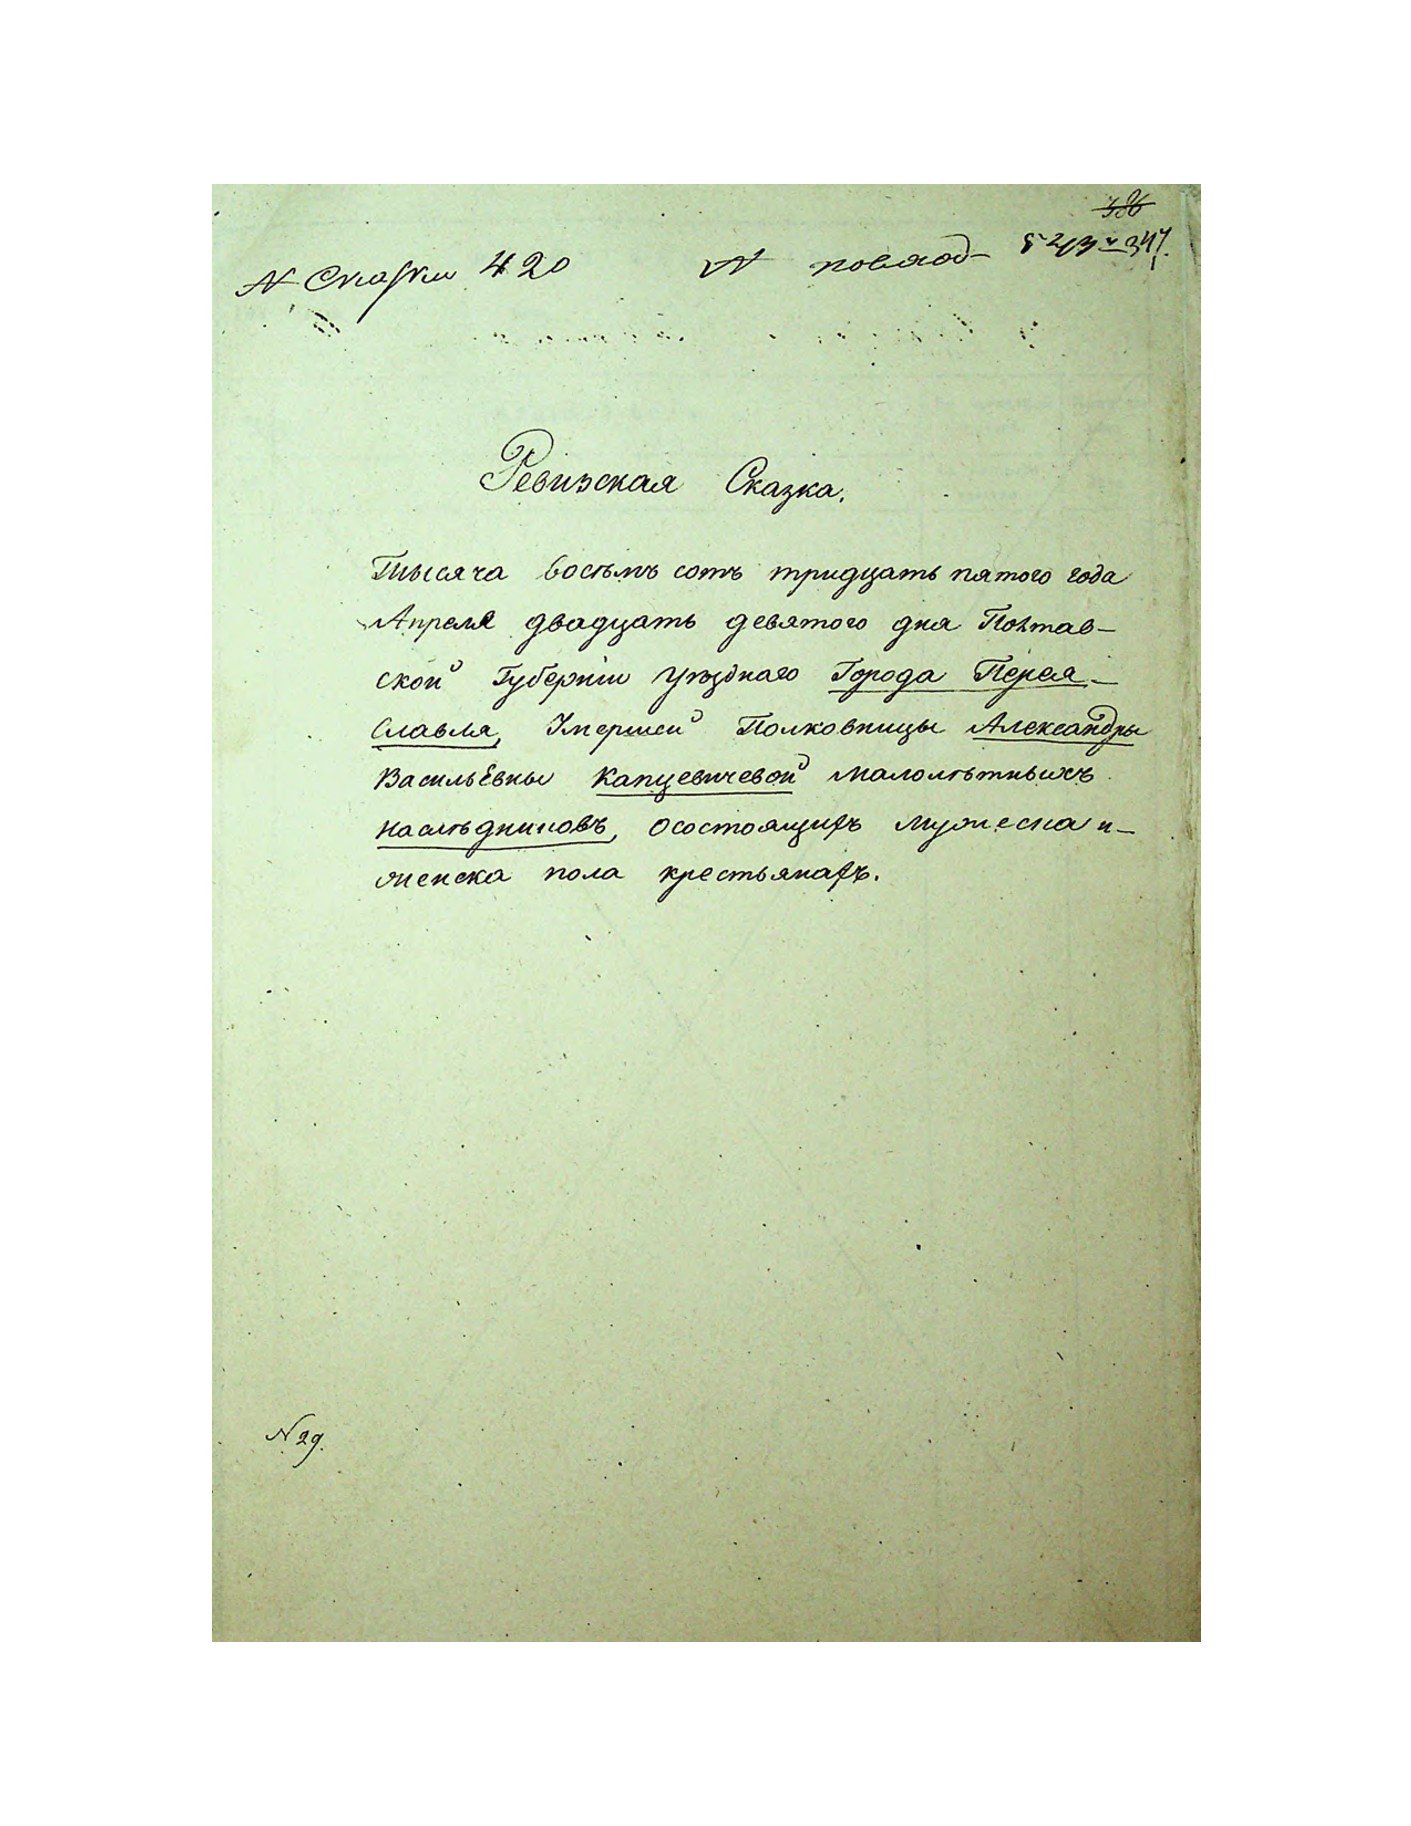 № Сказки 420 №
Ревизская Сказка.
Тысяча восемь сотъ тридцать пятого года
Апреля двадцать девятого дня Полтав-
ской Губерніи уѣзднаго Города Перея-
славля, Умершей Полковницы Александры
Васильевны Капцевичевой малолѣтныхъ
наслѣдниковъ, осостоящихъ мужеска и-
женска пола крестьянахъ.
№ 29.